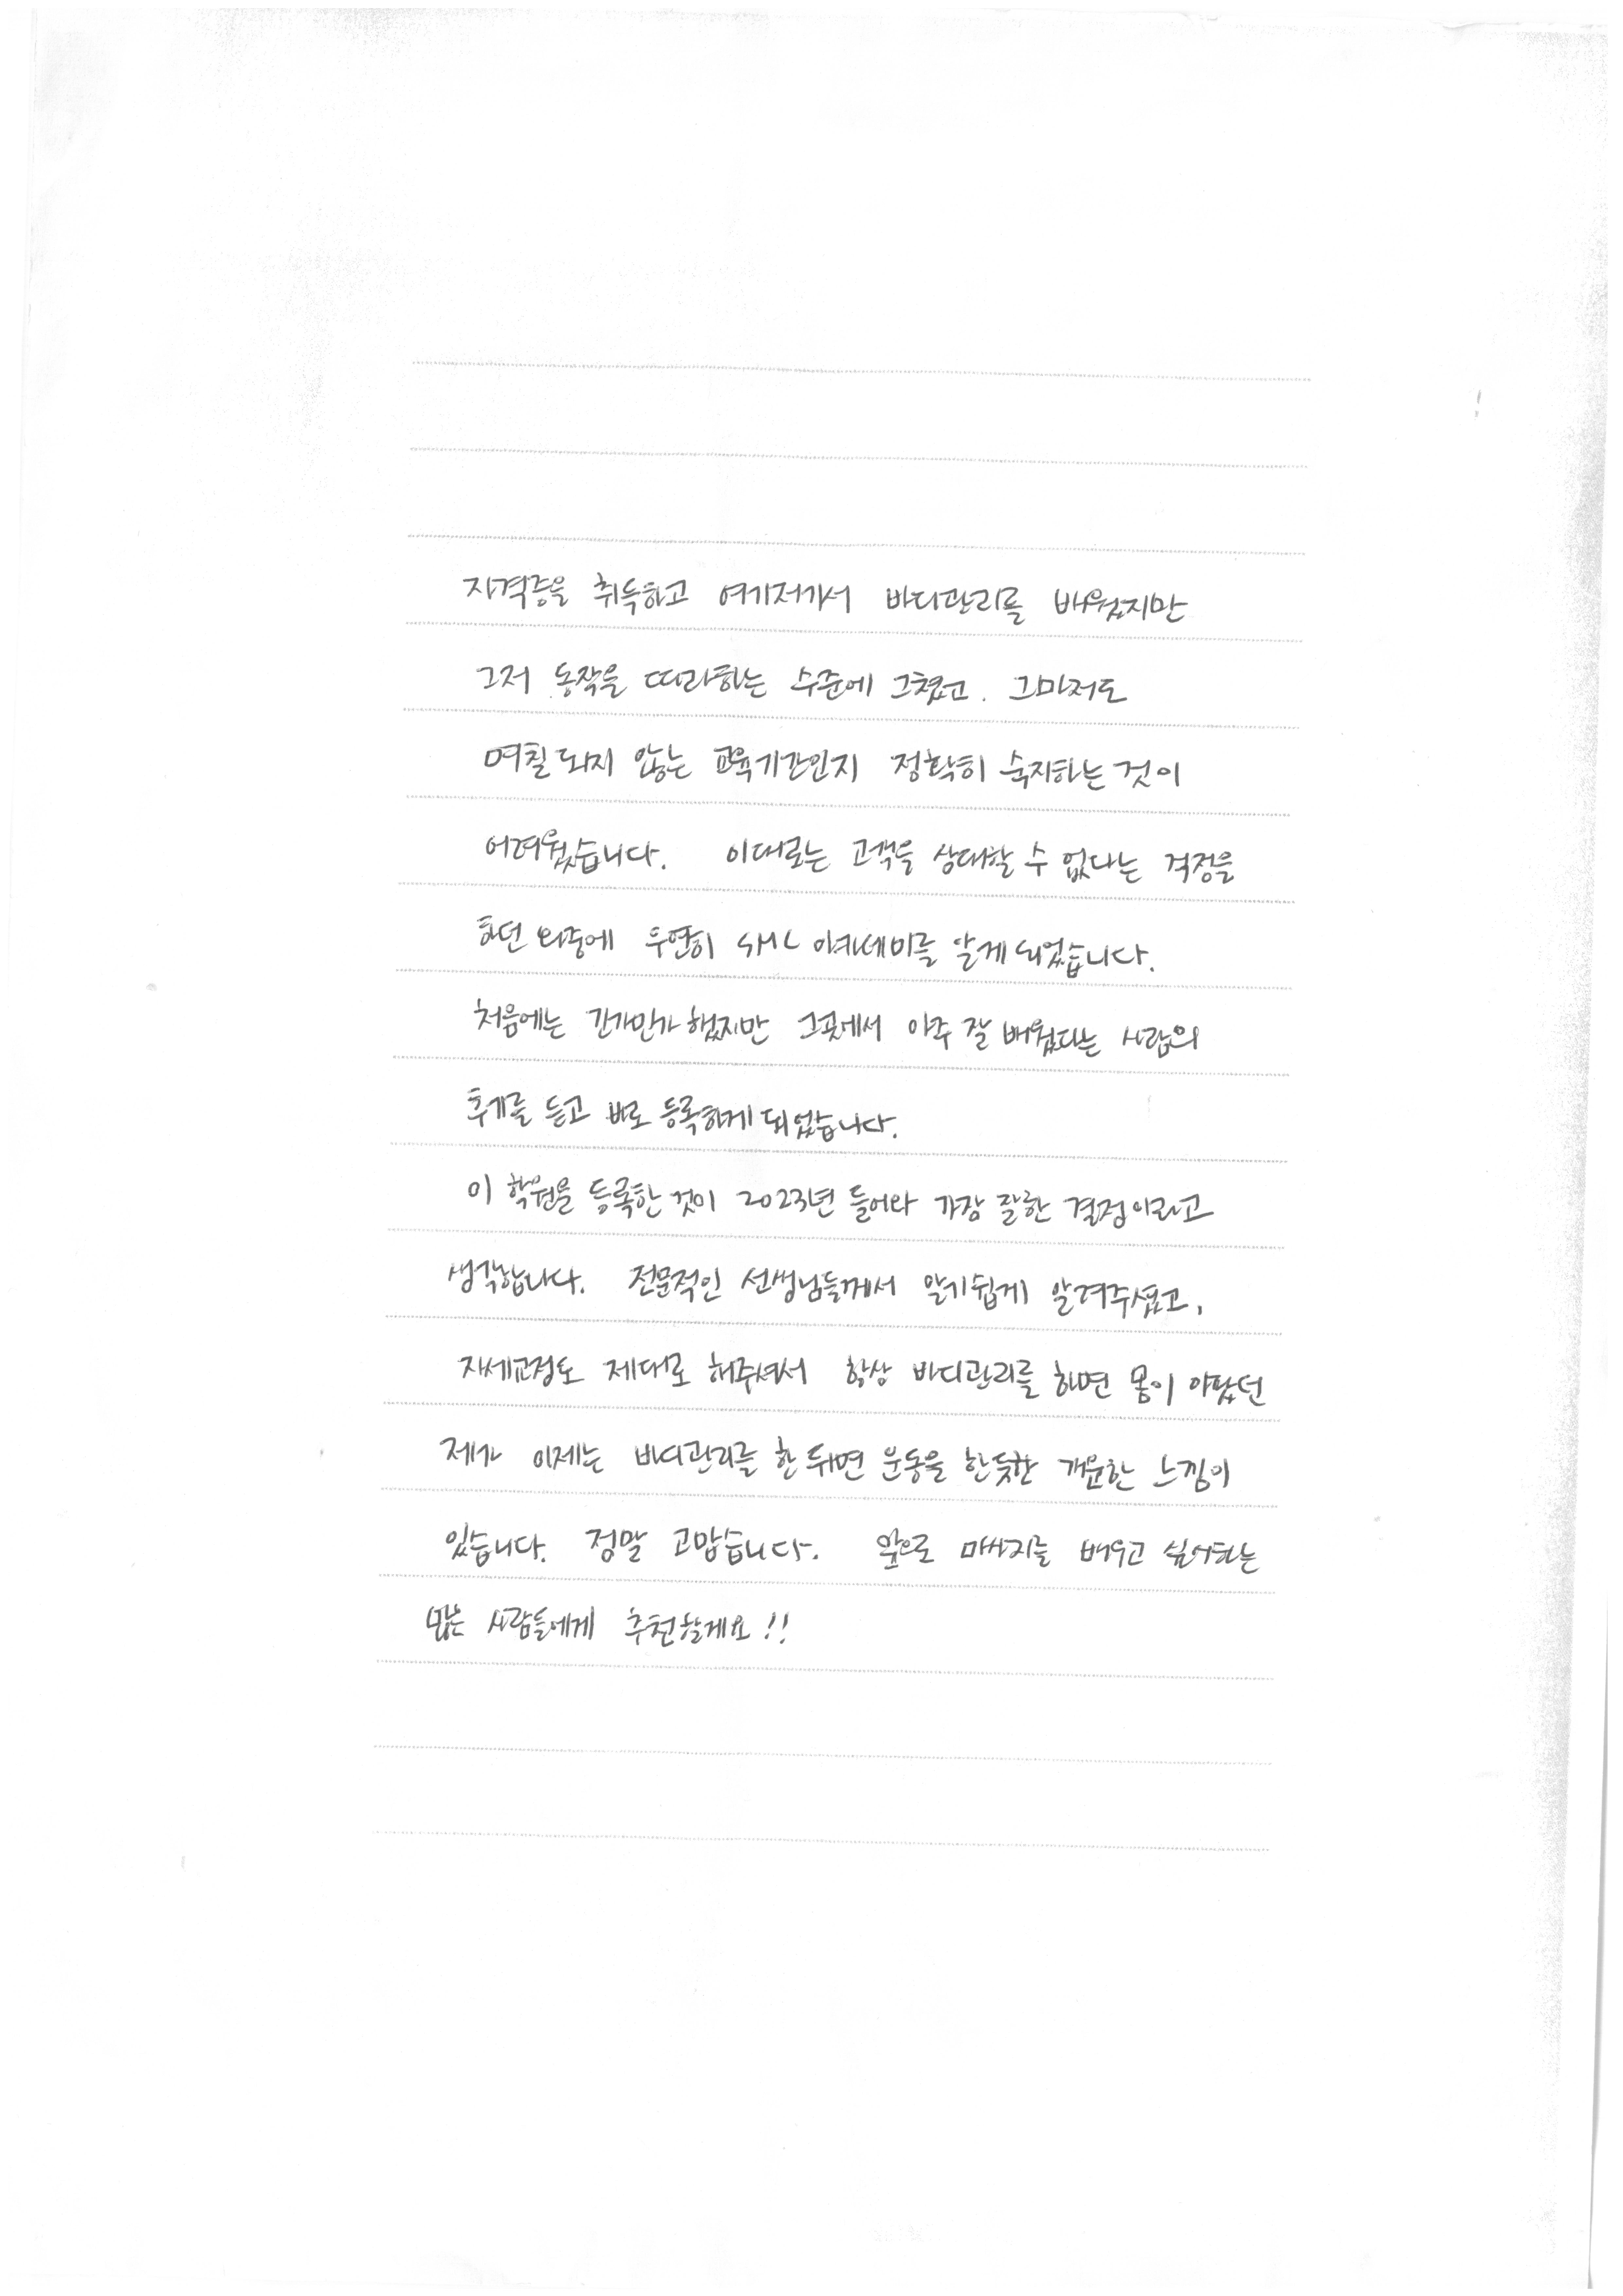 자격증을 취득하고 여기저기서 바디관리를 배웠지만
그저 동작을 따라하는 수준에 그쳤고. 그마저도
며칠 되지 않는 교육기간인지 정확히 숙지하는 것이
어려웠습니다. 이대로는 고객을 상대할 수 없다는 걱정을
하던 와중에 우연히 SML 아카데미를 알게 되었습니다.
처음에는 긴가민가 했지만 그곳에서 아주 잘 배웠다는 사람의
후기를 듣고 바로 등록하게 되었습니다.
이 학원을 등록한 것이 2023년 들어와 가장 잘한 결정이라고
생각합니다. 전문적인 선생님들께서 알기쉽게 알려주셨고,
자세교정도 제대로 해주셔서 항상 바디관리를 하면 몸이 아팠던
제가 이제는 바디관리를 한 뒤면 운동을 한듯한 개운한 느낌이
있습니다. 정말 고맙습니다. 앞으로 마사지를 배우고 싶어하는
많은 사람들에게 추천할게요!!